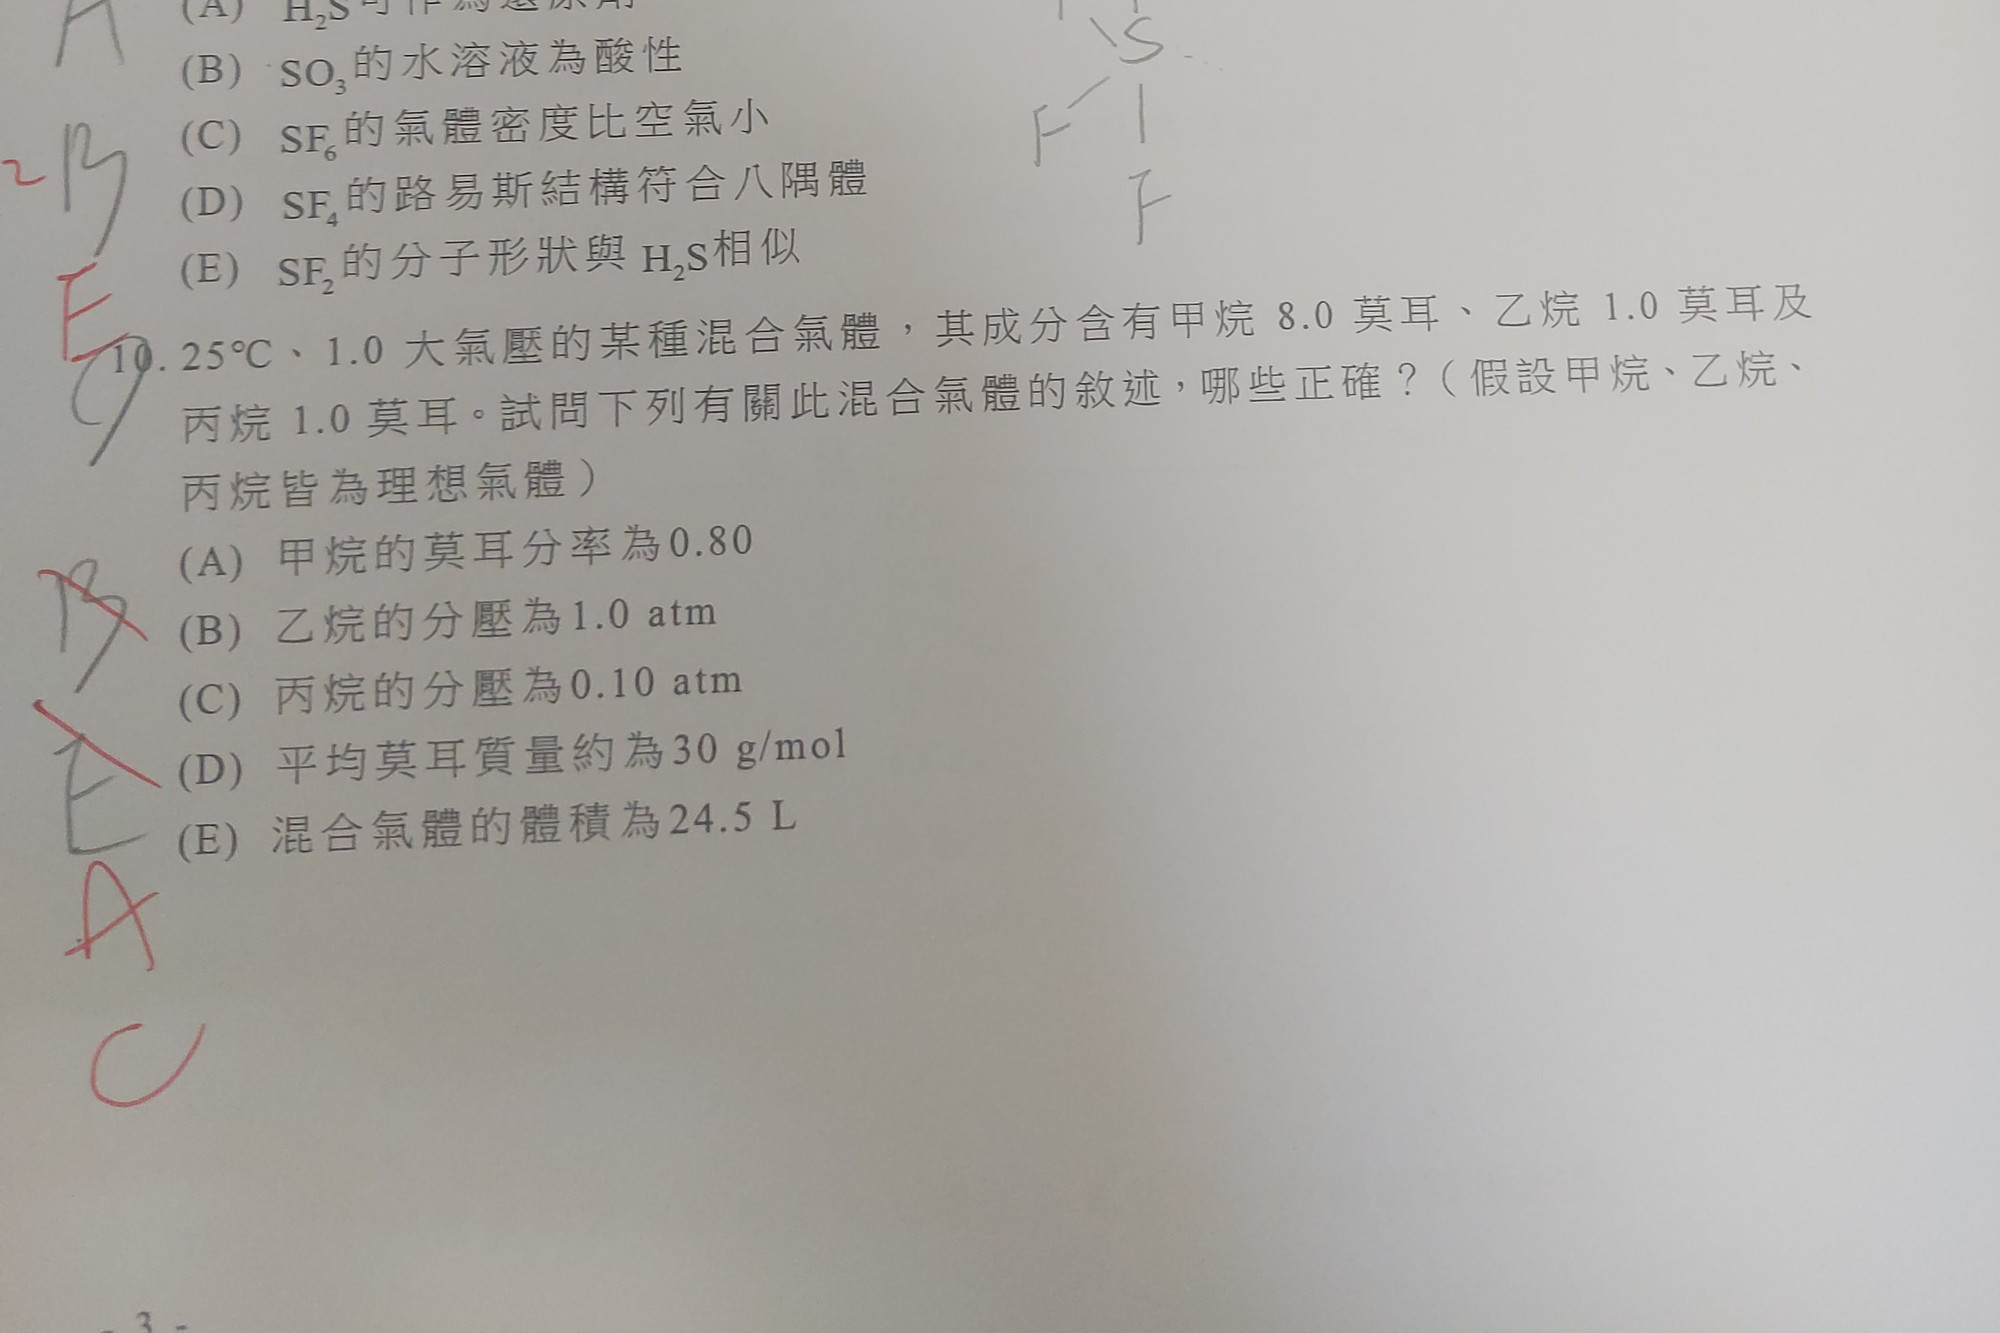 A
(A) H₂S可作為還原劑
(B) SO₃的水溶液為酸性
(C) SF₆的氣體密度比空氣小
(D) SF₄的路易斯結構符合八隅體
(E) SF₂的分子形狀與 H₂S相似
S
F
F
2
B
E
10. 25℃、1.0 大氣壓的某種混合氣體，其成分含有甲烷 8.0 莫耳、乙烷 1.0 莫耳及
丙烷 1.0 莫耳。試問下列有關此混合氣體的敘述，哪些正確？（假設甲烷、乙烷、
丙烷皆為理想氣體）
(A) 甲烷的莫耳分率為0.80
(B) 乙烷的分壓為1.0 atm
(C) 丙烷的分壓為0.10 atm
(D) 平均莫耳質量約為30 g/mol
(E) 混合氣體的體積為24.5 L
B
E
A
C
- 3 -